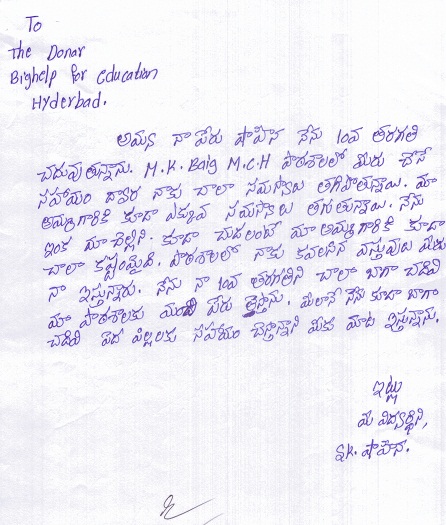 To
The Donar
Bighelp for education
Hyderbad.
అమ్మ నా పేరు షాహిన నేను 10వ తరగతి
చదువుతున్నాను. M.K. Baig M.C.H పాఠశాలలో మీరు చేసే
సహాయం ద్వార నాకు చాలా సమస్యలు తగ్గిపోతున్నాయి. మా
అమ్మగారికి కూడా ఎక్కువ సమస్యలు తగ్గుతున్నాయి. నేను
ఇంక మా చెల్లిని కూడా చదలంటే మా అమ్మగారికి కూడా
చాలా కష్టంమైది. పాఠశాలలో నాకు కవలసిన వస్తువులు మీరు
నా ఇస్తున్నారు. నేను నా 10వ తరగతిని చాలా బాగా చదివి
మా పాఠశాలకు మంచి పేరు తెస్తాను. మీలానే నేను కూడా బాగా
చదివి పేద పిల్లలకు సహాయం చేస్తానాని మీకు మాట ఇస్తున్నాను.
ఇట్లు
మీ విద్యార్థిని,
SK. షాహిన.